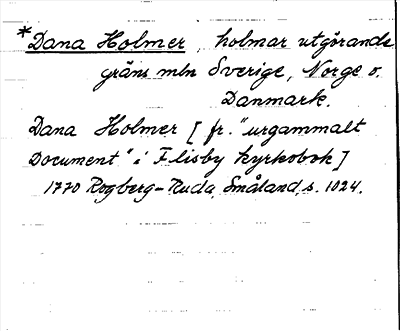 *Dana Holmer, holmar utgörande
gräns mln Sverige, Norge o.
Danmark.
Dana Holmer [fr. "urgammalt
Document" i Flisby kyrkobok]
1770 Rogberg-Ruda, Småland, s. 1024.